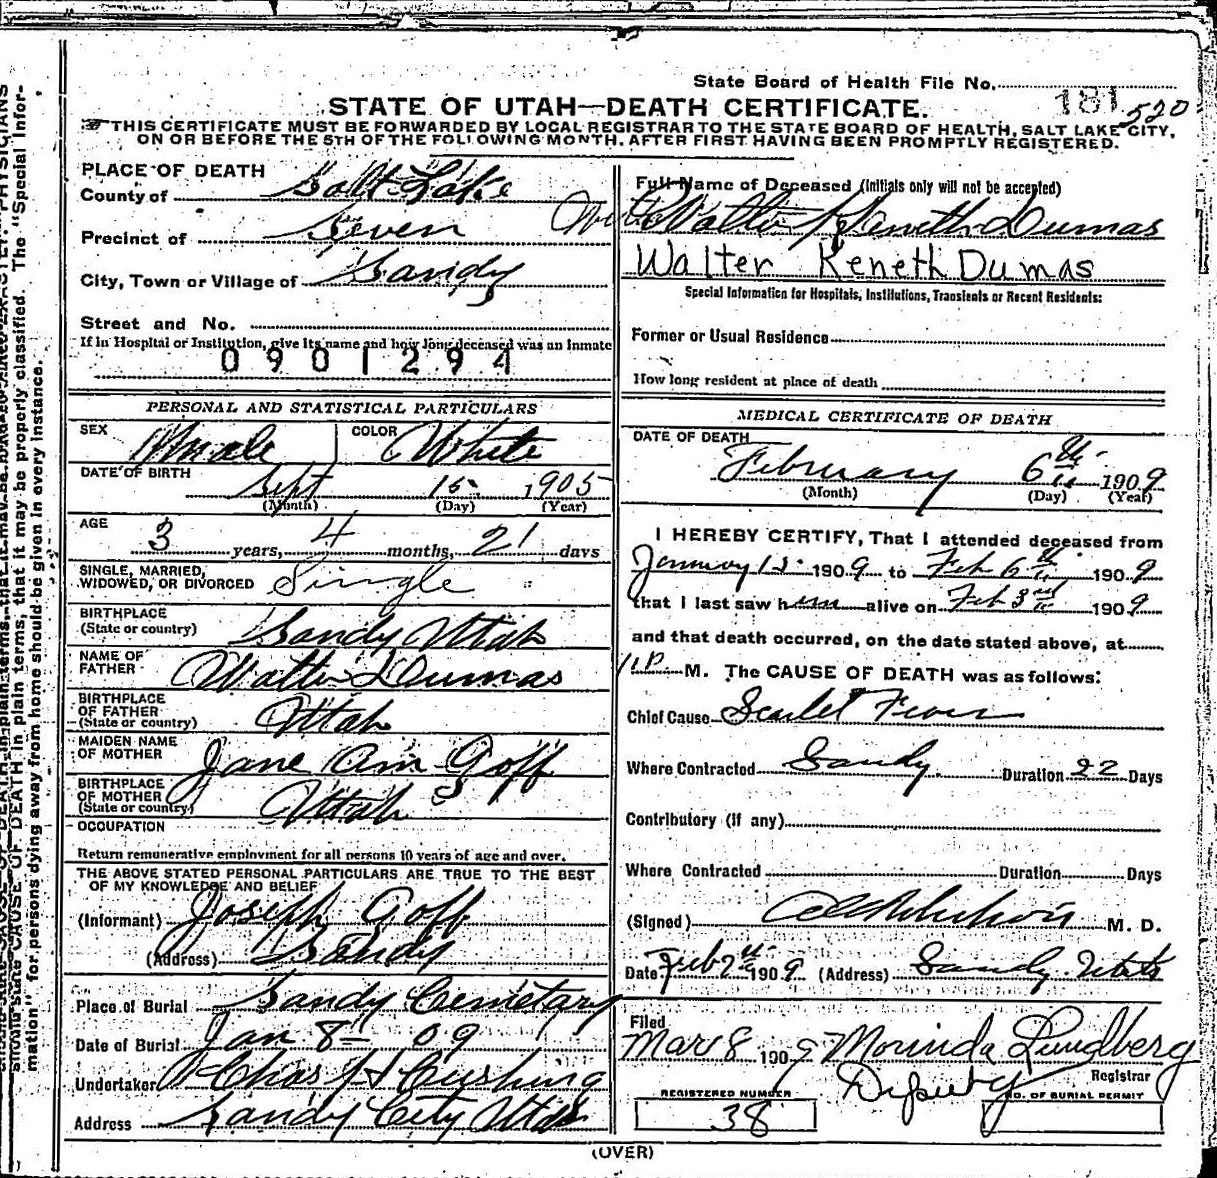 State Board of Health File No. 181 520
STATE OF UTAH—DEATH CERTIFICATE.
THIS CERTIFICATE MUST BE FORWARDED BY LOCAL REGISTRAR TO THE STATE BOARD OF HEALTH, SALT LAKE CITY,
ON OR BEFORE THE 5TH OF THE FOLLOWING MONTH, AFTER FIRST HAVING BEEN PROMPTLY REGISTERED.
PLACE OF DEATH
County of Salt Lake
Precinct of Seven
City, Town or Village of Sandy
Street and No.
If in Hospital or Institution, give its name and how long deceased was an inmate
0901294
PERSONAL AND STATISTICAL PARTICULARS
SEX Male COLOR White
DATE OF BIRTH Sept 15 1905
(Month) (Day) (Year)
AGE 3 years, 4 months, 21 days
SINGLE, MARRIED,
WIDOWED, OR DIVORCED Single
BIRTHPLACE
(State or country) Sandy Utah
NAME OF
FATHER Walter Dumas
BIRTHPLACE
OF FATHER
(State or country) Utah
MAIDEN NAME
OF MOTHER Jane Ann Goff
BIRTHPLACE
OF MOTHER
(State or country) Utah
OCCUPATION
Return remunerative employment for all persons 10 years of age and over.
THE ABOVE STATED PERSONAL PARTICULARS ARE TRUE TO THE BEST
OF MY KNOWLEDGE AND BELIEF
(Informant) Joseph Goff
(Address) Sandy
Place of Burial Sandy Cemetary
Date of Burial Jan 8 09
Undertaker Chas H Cushing
Address Sandy City Utah
Full Name of Deceased (Initials only will not be accepted)
Walter Keneth Dumas
Walter Keneth Dumas
Special Information for Hospitals, Institutions, Transients or Recent Residents:
Former or Usual Residence
How long resident at place of death
MEDICAL CERTIFICATE OF DEATH
DATE OF DEATH
February 6th 1909
(Month) (Day) (Year)
I HEREBY CERTIFY, That I attended deceased from
January 15 1909 to Feb 6th 1909
that I last saw him alive on Feb 3rd 1909
and that death occurred, on the date stated above, at
11 P. M. The CAUSE OF DEATH was as follows:
Chief Cause Scarlet Fever
Where Contracted Sandy Duration 22 Days
Contributory (if any)
Where Contracted Duration Days
(Signed) M. D.
Date Feb 7th 1909 (Address) Sandy Utah
Filed
Mar 8 1909 Morinda Lundberg
Registrar
Deputy
REGISTERED NUMBER
38
NO. OF BURIAL PERMIT
(OVER)
CAUSE OF DEATH in plain terms, that it may be properly classified. The "Special Infor-
mation" for persons dying away from home should be given in every instance.